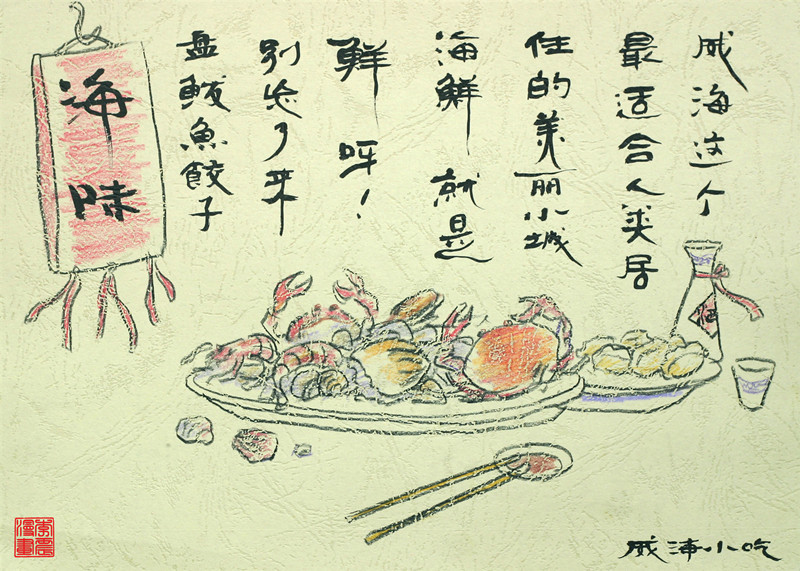 威海这个
最适合人类居
住的美丽小城
海鲜就是
鲜呀！
别忘了来
盘鲅魚餃子
海味
酒
威海小吃
李震漫畫